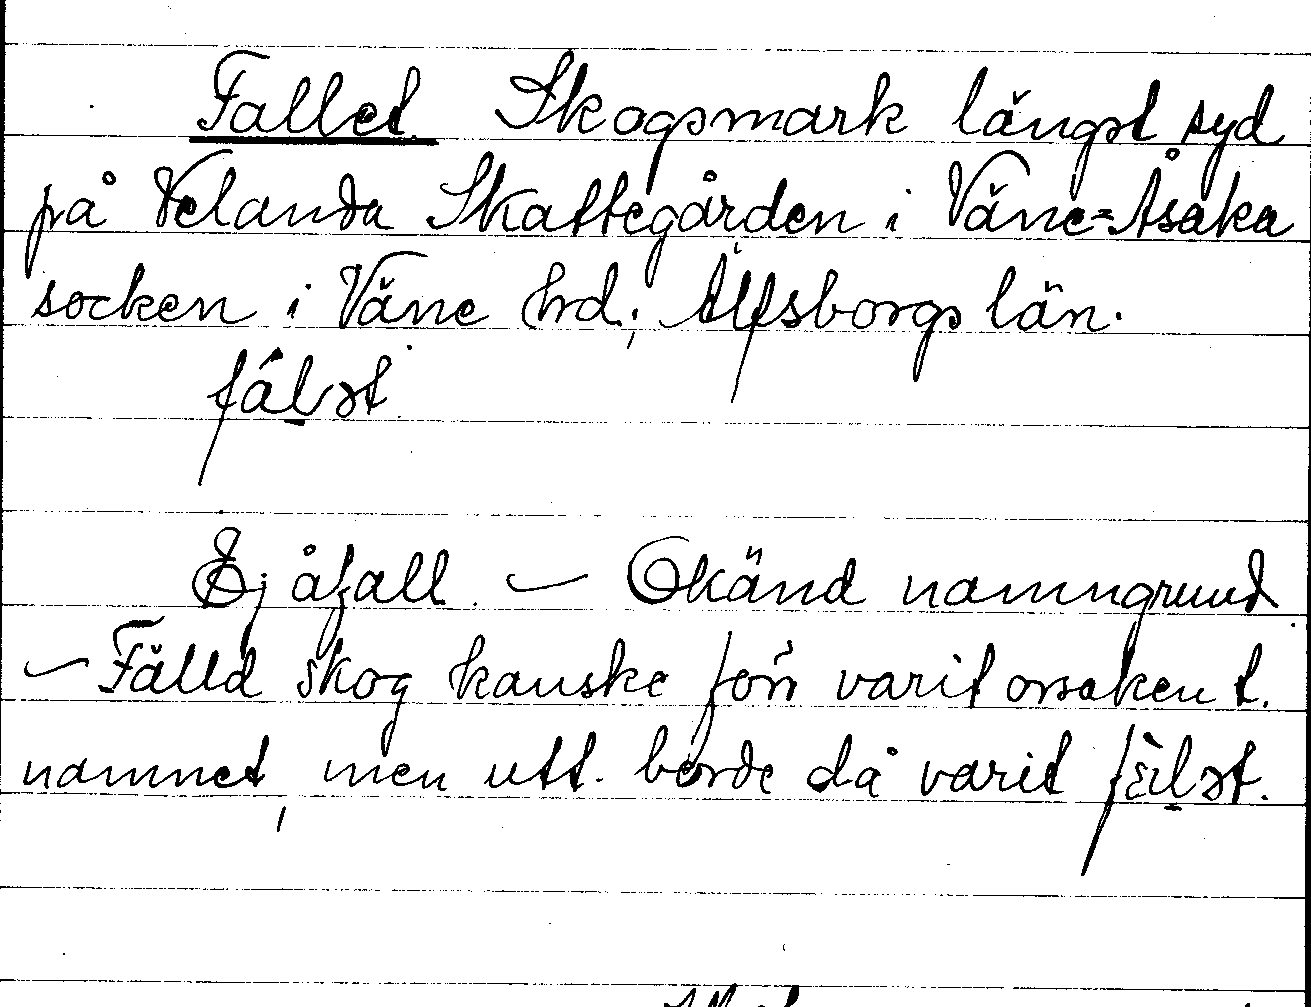 Fallet. Skogsmark längst syd
på Velanda Skattegården i Väne=Åsaka
socken i Väne hrd; Älfsborgs län.
Ej åfall. — Okänd namngrund
— Fälld skog kanske förr varit orsaken t.
namnet, men utt. borde då varit